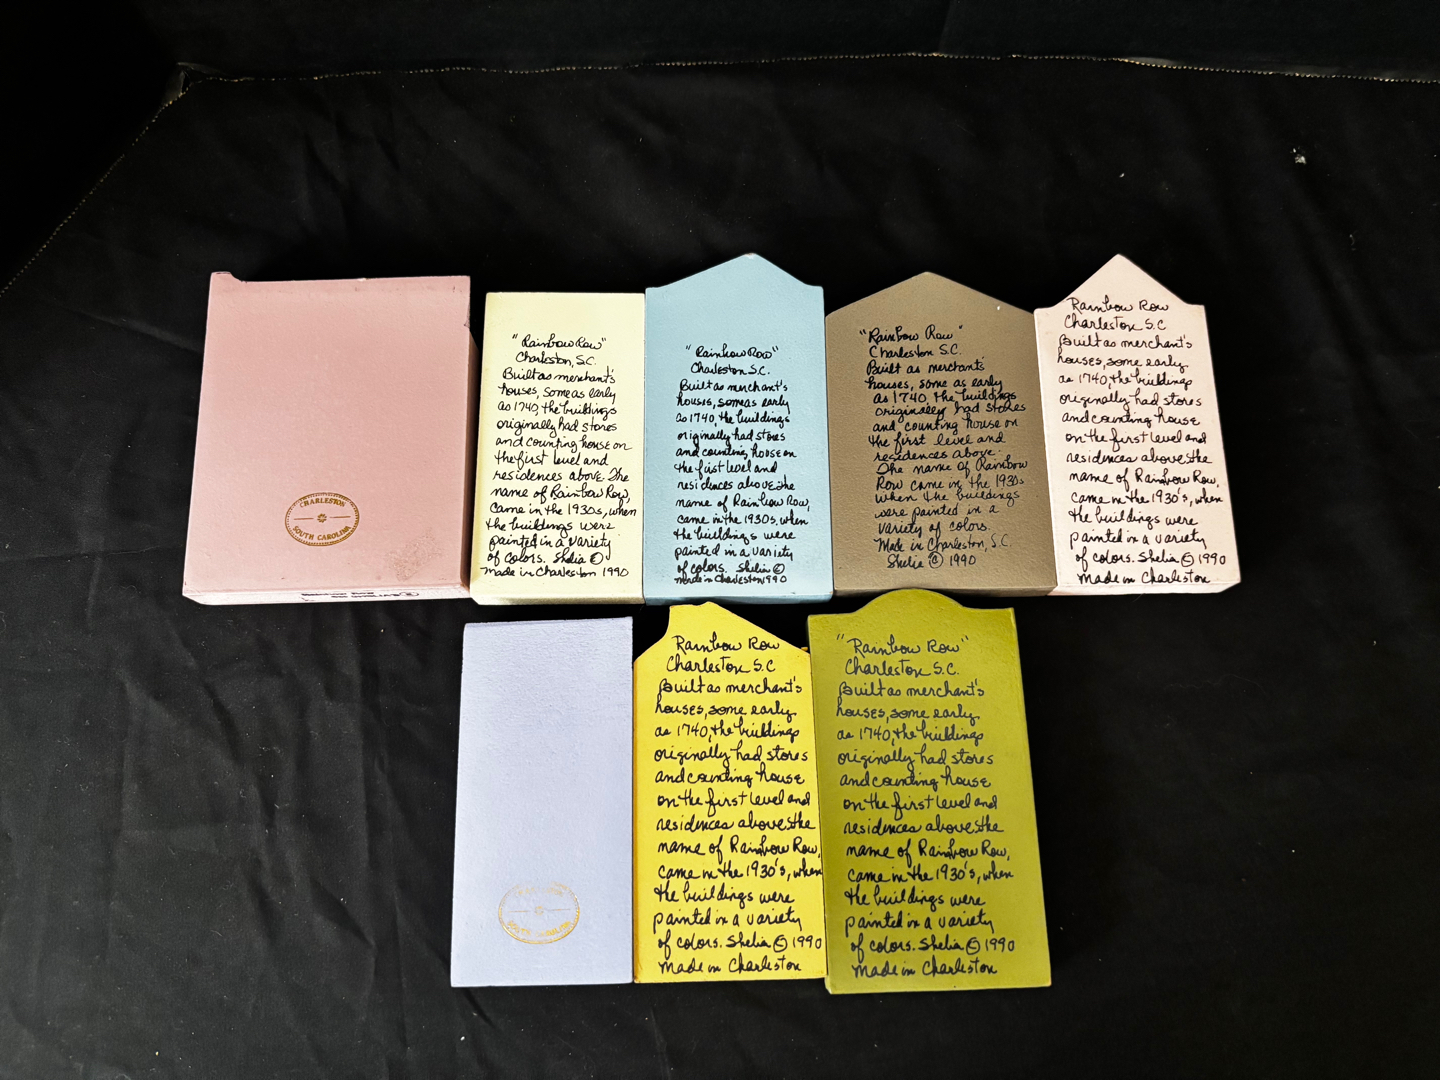 CHARLESTON
SOUTH CAROLINA
"Rainbow Row"
Charleston, S.C.
Built as merchant's
houses, some as early
as 1740, the buildings
originally had stores
and counting house on
the first level and
residences above. The
name of Rainbow Row,
came in the 1930s, when
the buildings were
painted in a variety
of colors. Shelia ©
made in Charleston 1990
"Rainbow Row"
Charleston S.C.
Built as merchant's
houses, some as early
as 1740, the buildings
originally had stores
and counting house on
the first level and
residences above. The
name of Rainbow Row,
came in the 1930s, when
the buildings were
painted in a variety
of colors. Shelia ©
made in Charleston 1990
"Rainbow Row"
Charleston S.C.
Built as merchants'
houses, some as early
as 1740 the buildings
originally had stores
and counting house on
the first level and
residences above.
The name of Rainbow
Row came in the 1930s
when the buildings
were painted in a
variety of colors.
Made in Charleston, S.C
Shelia © 1990
Rainbow Row
Charleston S.C
Built as merchant's
houses, some early
as 1740, the buildings
originally had stores
and counting house
on the first level and
residences above. the
name of Rainbow Row,
came in the 1930's, when
the buildings were
painted in a variety
of colors. Shelia © 1990
made in Charleston
SOUTH CAROLINA
Rainbow Row
Charleston S.C
Built as merchant's
houses, some early
as 1740, the buildings
originally had stores
and counting house
on the first level and
residences above. the
name of Rainbow Row,
came in the 1930's, when
the buildings were
painted in a variety
of colors. Shelia © 1990
made in Charleston
"Rainbow Row"
Charleston S.C.
Built as merchant's
houses, some early
as 1740, the buildings
originally had stores
and counting house
on the first level and
residences above. the
name of Rainbow Row,
came in the 1930's, when
the buildings were
painted in a variety
of colors. Shelia © 1990
made in Charleston